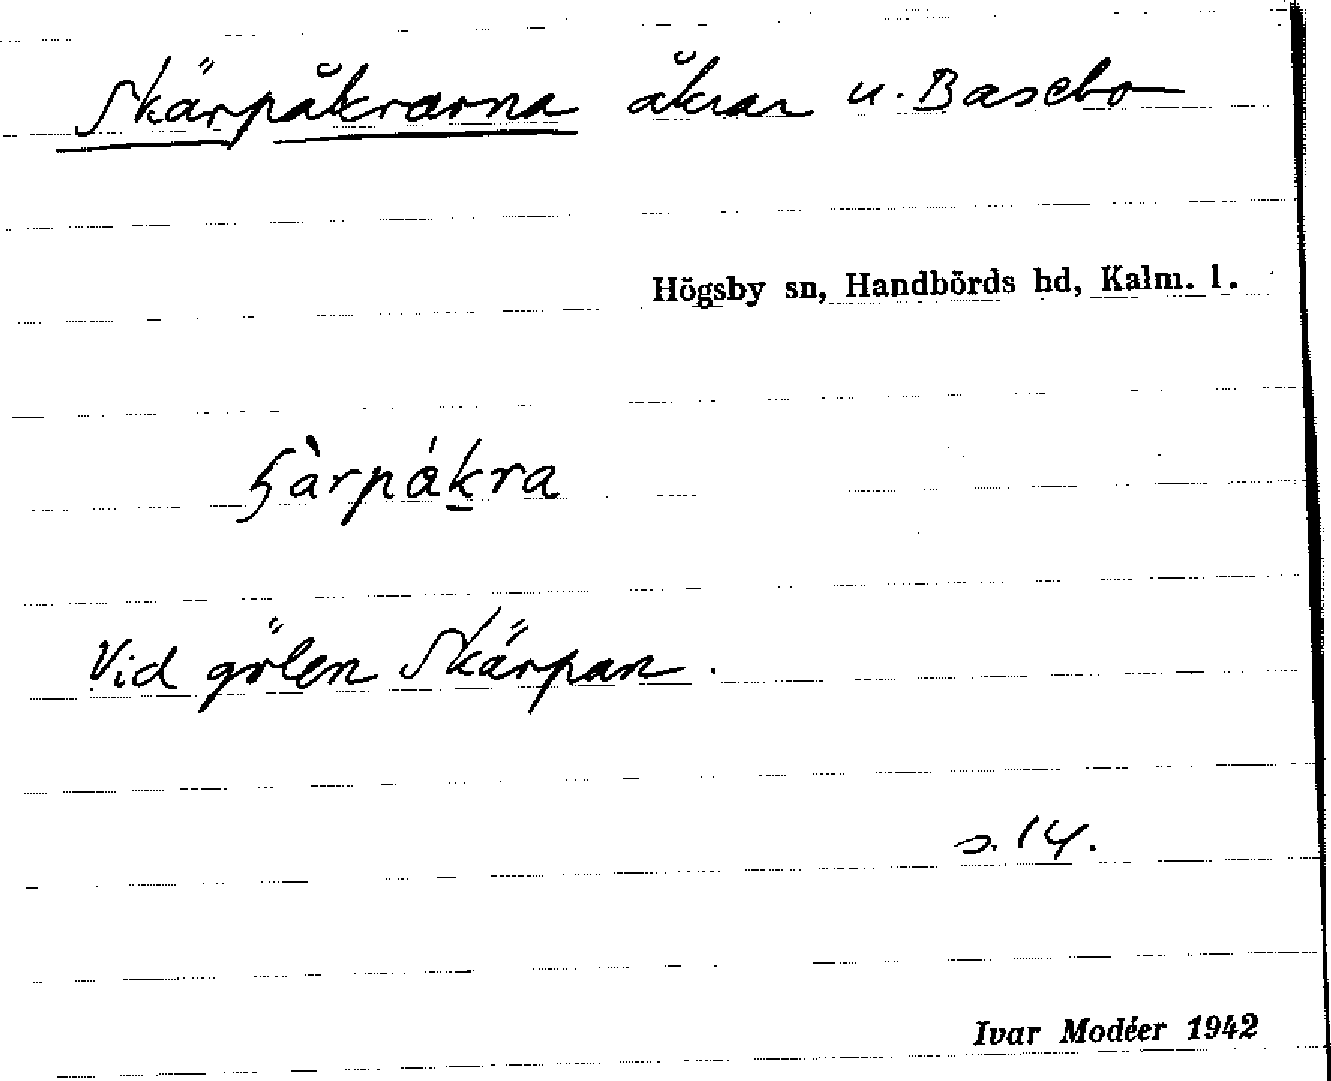 Skärpåkrarna åkrar u. Basebo
Högsby sn, Handbörds hd, Kalm. l.
ɧàrpákra
Vid gölen Skärpan.
s. 14.
Ivar Modéer 1942